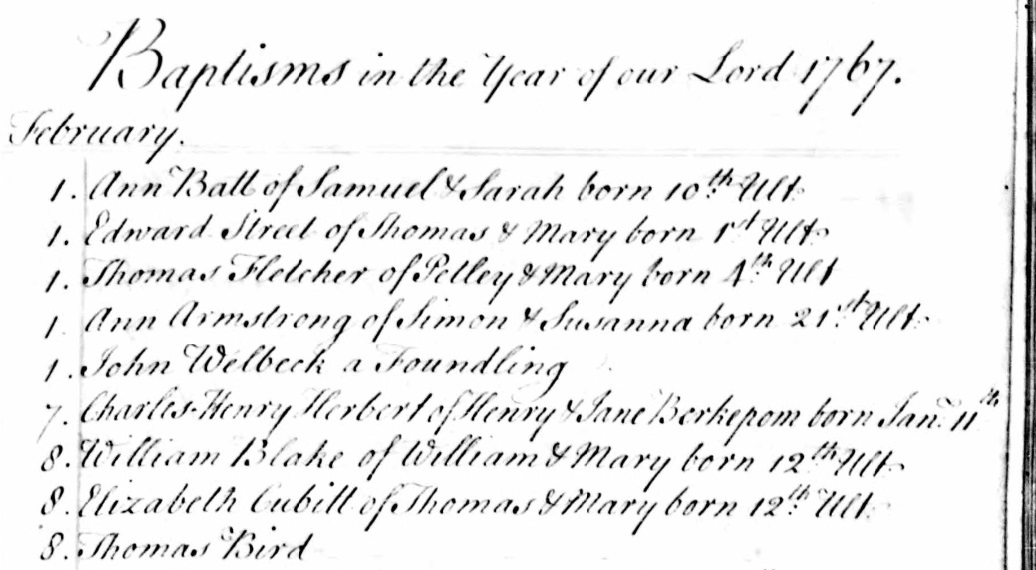 Baptisms in the Year of our Lord 1767.
February.
1. Ann Batt of Samuel & Sarah born 10th Ult.
1. Edward Street of Thomas & Mary born 1st Ult.
1. Thomas Fletcher of Petley & Mary born 4th Ult
1. Ann Armstrong of Simon & Susanna born 21st Ult.
1. John Welbeck a Foundling
7. Charles-Henry Herbert of Henry & Jane Berkepom born Jan. 11th
8. William Blake of William & Mary born 12th Ult.
8. Elizabeth Cubitt of Thomas & Mary born 12th Ult.
8. Thomas Bird